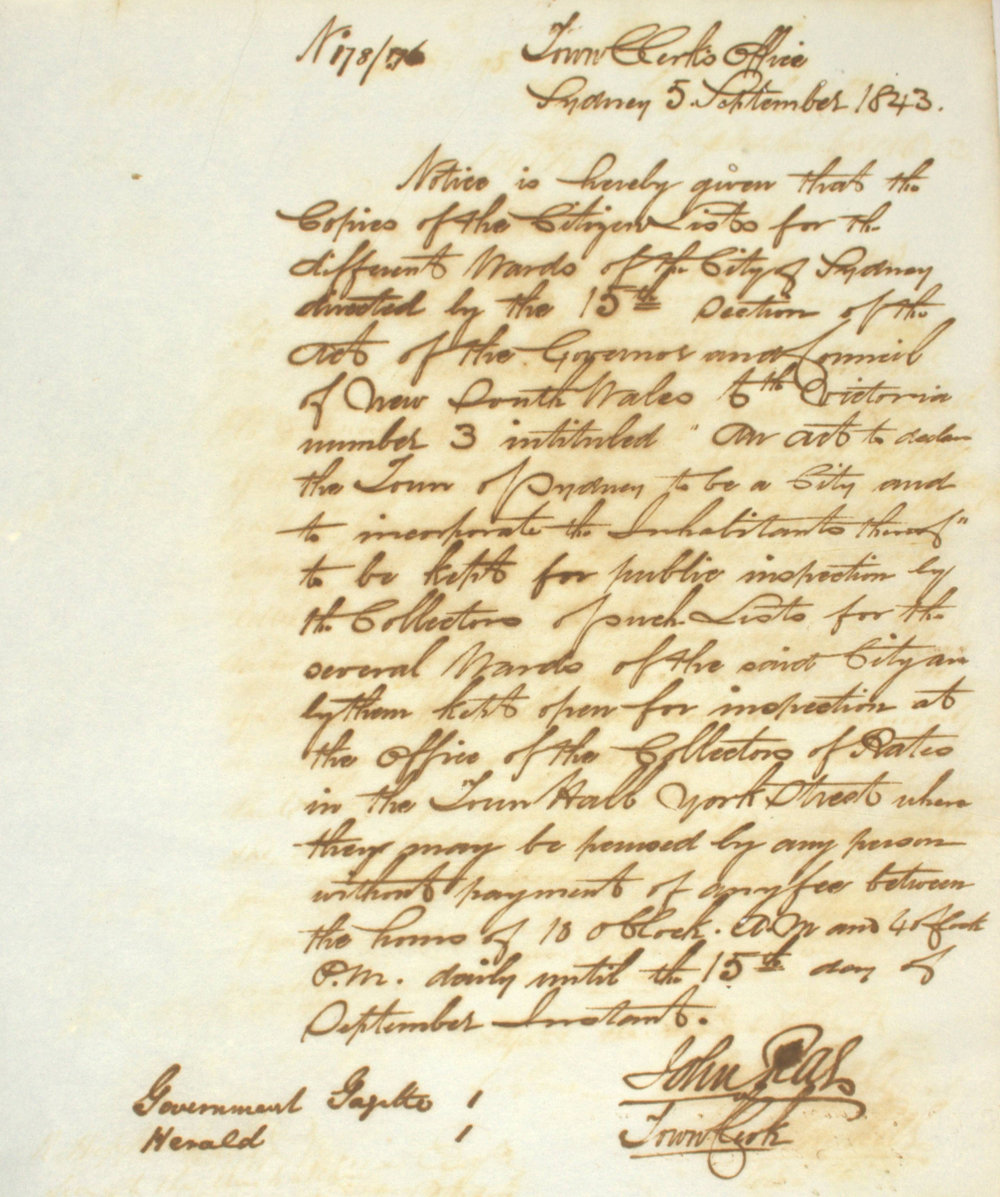 No 178/776
Town Clerk's Office
Sydney 5 September 1843.
Notice is hereby given that the
Copies of the Citizen Lists for the
different Wards of the City of Sydney
directed by the 15th Section of the
Act of the Governor and Council
of New South Wales 6th Victoria
number 3 intituled " An act to declare
the Town of Sydney to be a City and
to incorporate the Inhabitants thereof"
to be kept for public inspection by
the Collectors of such Lists for the
several Wards of the said City are
by them kept open for inspection at
the Office of the Collectors of Rates
in the Town Hall York Street where
they may be perused by any person
without payment of any fee between
the hours of 10 oClock. A.M and 4 oClock
P.M. daily until the 15th day of
September Instant.
John
Town Clerk
Government Gazette 1
Herald 1